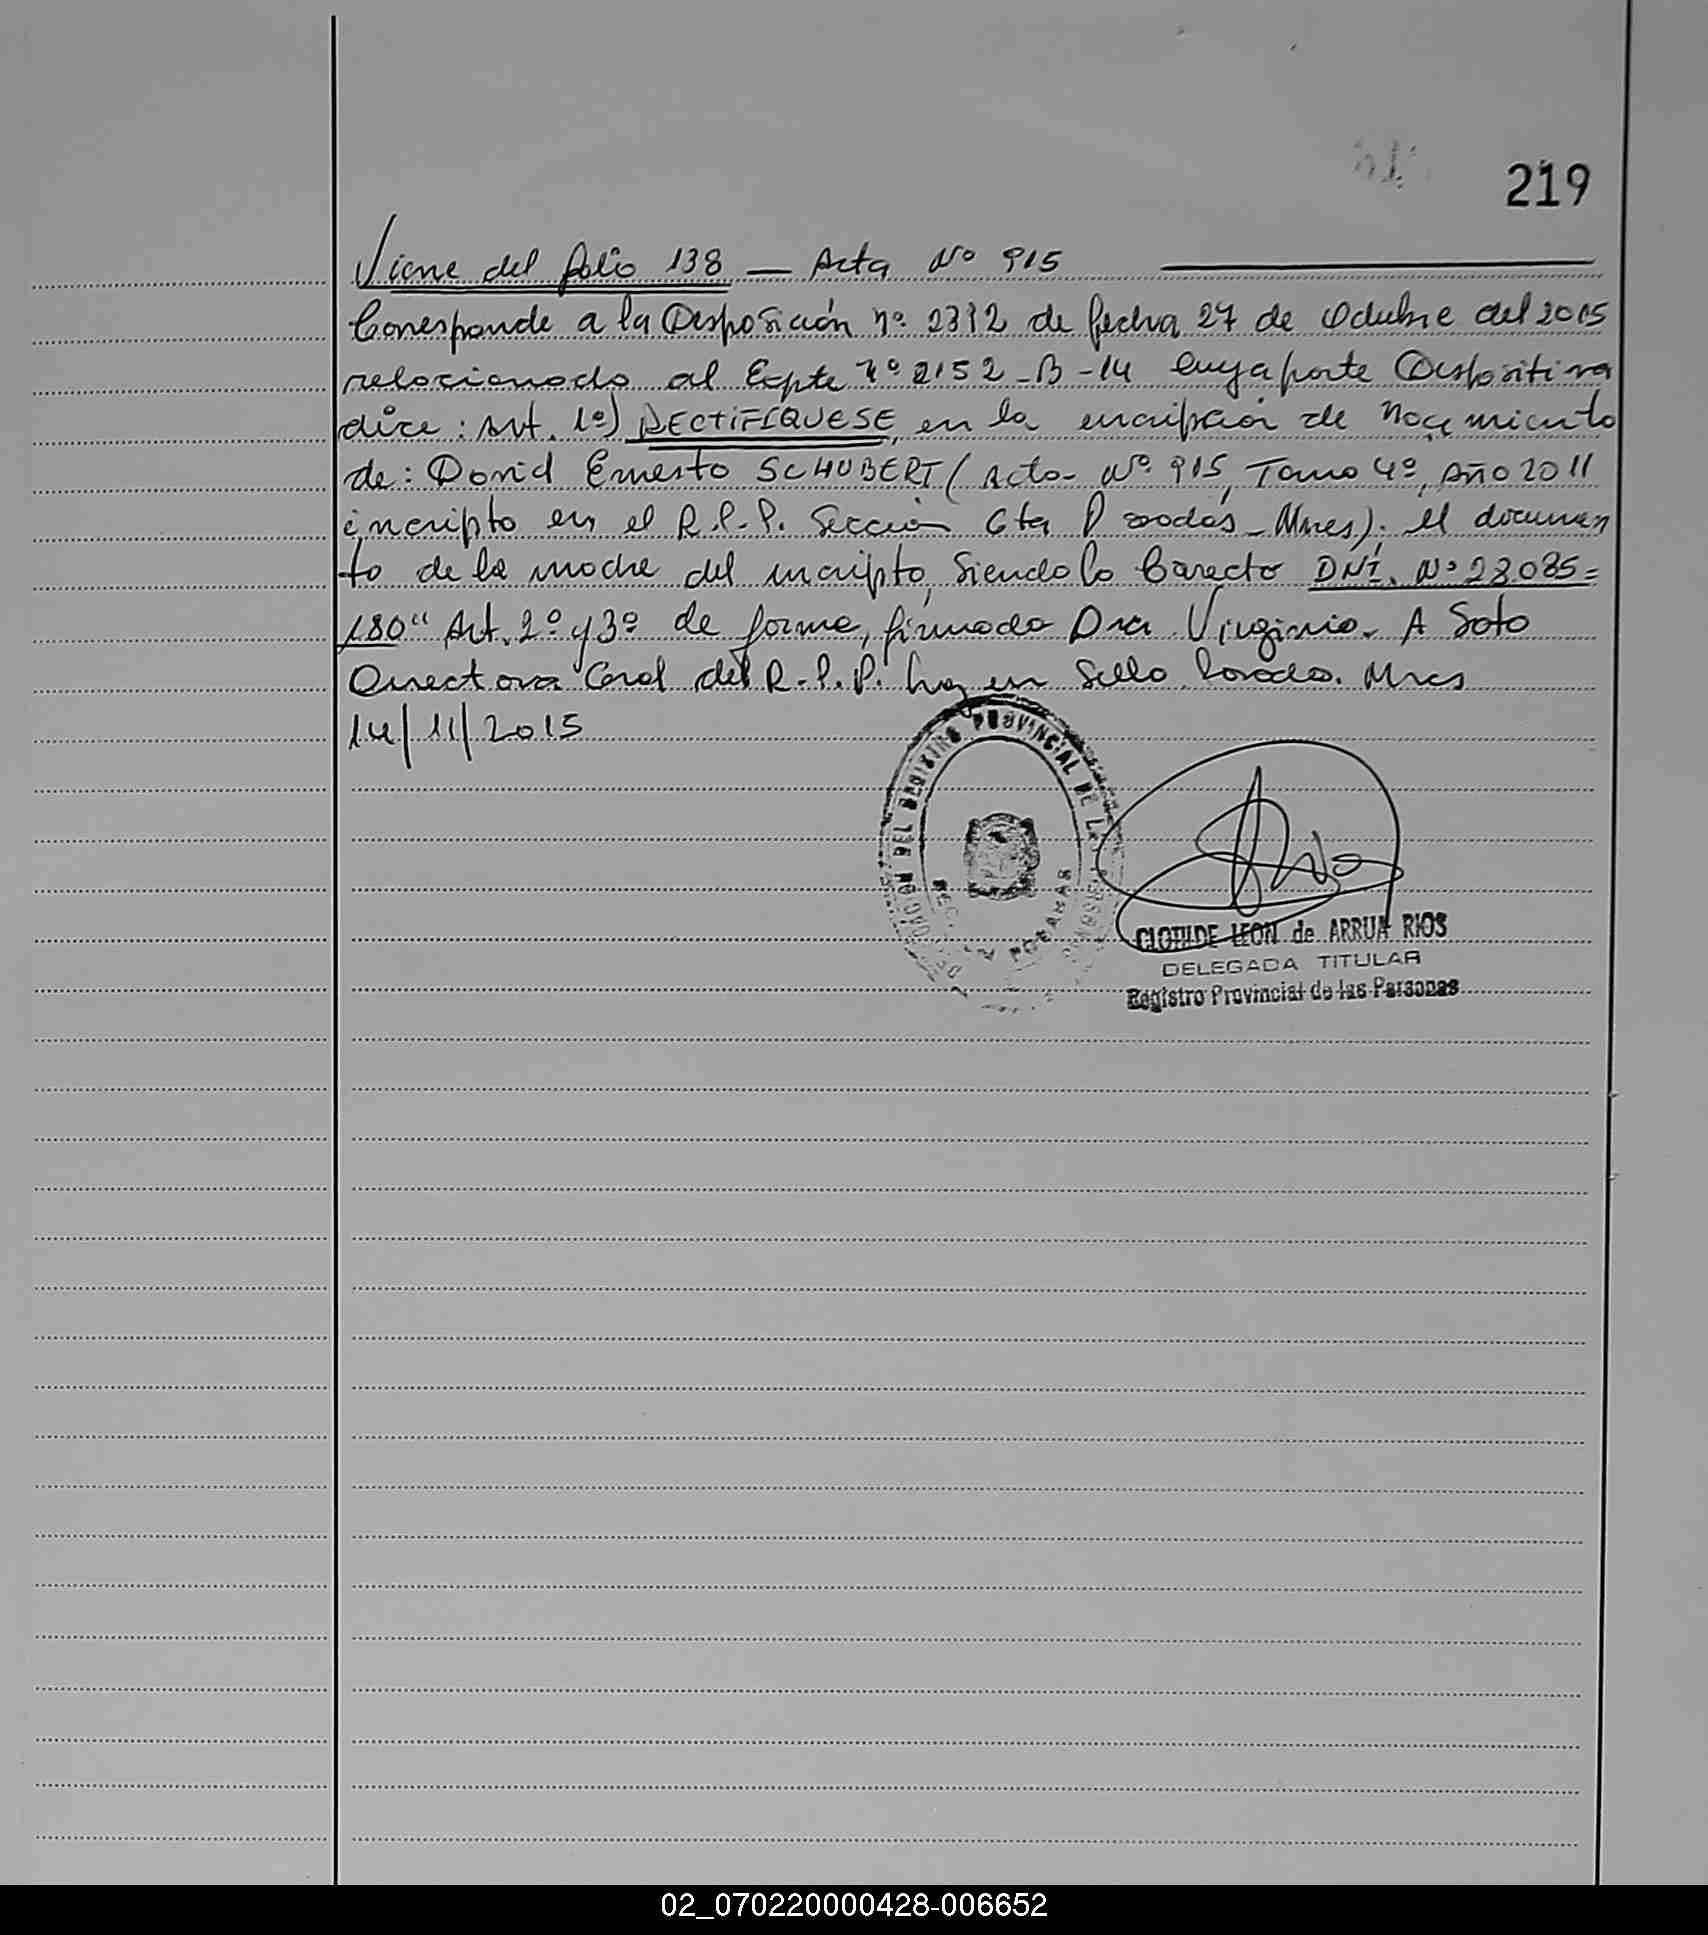 219
Viene del folio 138 — Acta Nº 915
Corresponde a la Disposición nº 2312 de fecha 27 de Octubre del 2015
relacionado al Expte nº 2152-B-14 cuya parte Dispositiva
dice: Art. 1º) RECTIFÍQUESE, en la incripción de Nacimiento
de: David Ernesto SCHUBERT (Acta Nº 915, Tomo 4º, Año 2011
incripto en el R.P.P. Sección 6ta Posadas - Mnes). el documen
to de la madre del incripto, Siendo lo Correcto DNI. Nº 28.085=
180" Art. 2º y 3º de forma, firmado Dra. Virginia. A Soto
Directora Gral del R.P.P. hay un Sello Posadas. Mnes
14/11/2015
DEL REGISTRO PROVINCIAL DE LAS
POSADAS
CLOTILDE LEON de ARRUA RIOS
DELEGADA TITULAR
Registro Provincial de las Personas
02_070220000428-006652